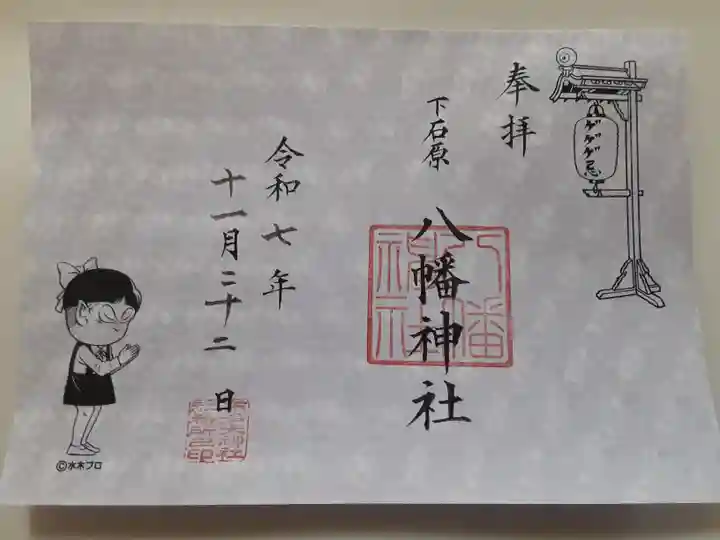 ゲゲゲ忌
奉拝
下石原
八幡神社
八幡神社
令和七年
十一月二十二日
©水木プロ